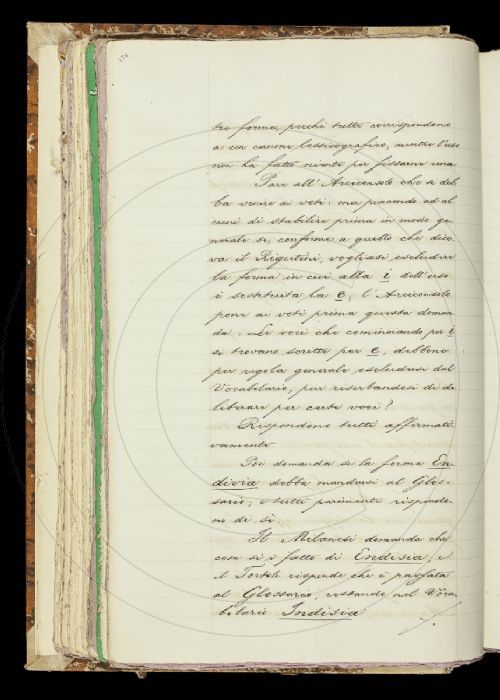 176
tre forme, perchè tutte corrispondono
a un canone lessicografico, mentre l'uso
non ha fatto niente per fissarne una.
Pare all'Arciconsolo che si deb-
ba venire ai voti: ma piacendo ad al-
cuni di stabilire prima in modo ge-
nerale se, conforme a quello che dice-
va il Rigutini, vogliasi escludere
la forma in cui alla i dell'uso
è sostituita la e, l'Arciconsolo
pone ai voti prima questa doman-
da: Le voci che cominciando per i
si trovano scritte per e, debbono
per regola generale escludersi dal
Vocabolario, pur riserbandosi di de-
liberare per certe voci?
Rispondono tutti affermati-
vamente.
Poi domanda se la forma En-
divia debba mandarsi al Glos-
sario; e tutti parimente rispondo-
no di sì.
Il Milanesi domanda che
cosa si è fatto di Endisia, e
il Tortoli risponde che è passata
al Glossario, restando nel Voca-
bolario Indisia